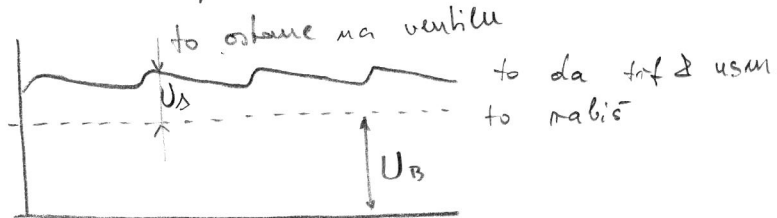 to ostane na ventilu
to da trf & usm
to rabiš
U∆
UB